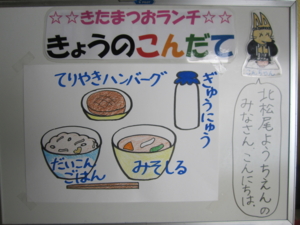 ☆☆きたまつおランチ☆☆
きょうのこんだて
てりやきハンバーグ
ぎゅうにゅう
だいこん
ごはん
みそしる
北松尾ようちえんの
みなさん、こんにちは。